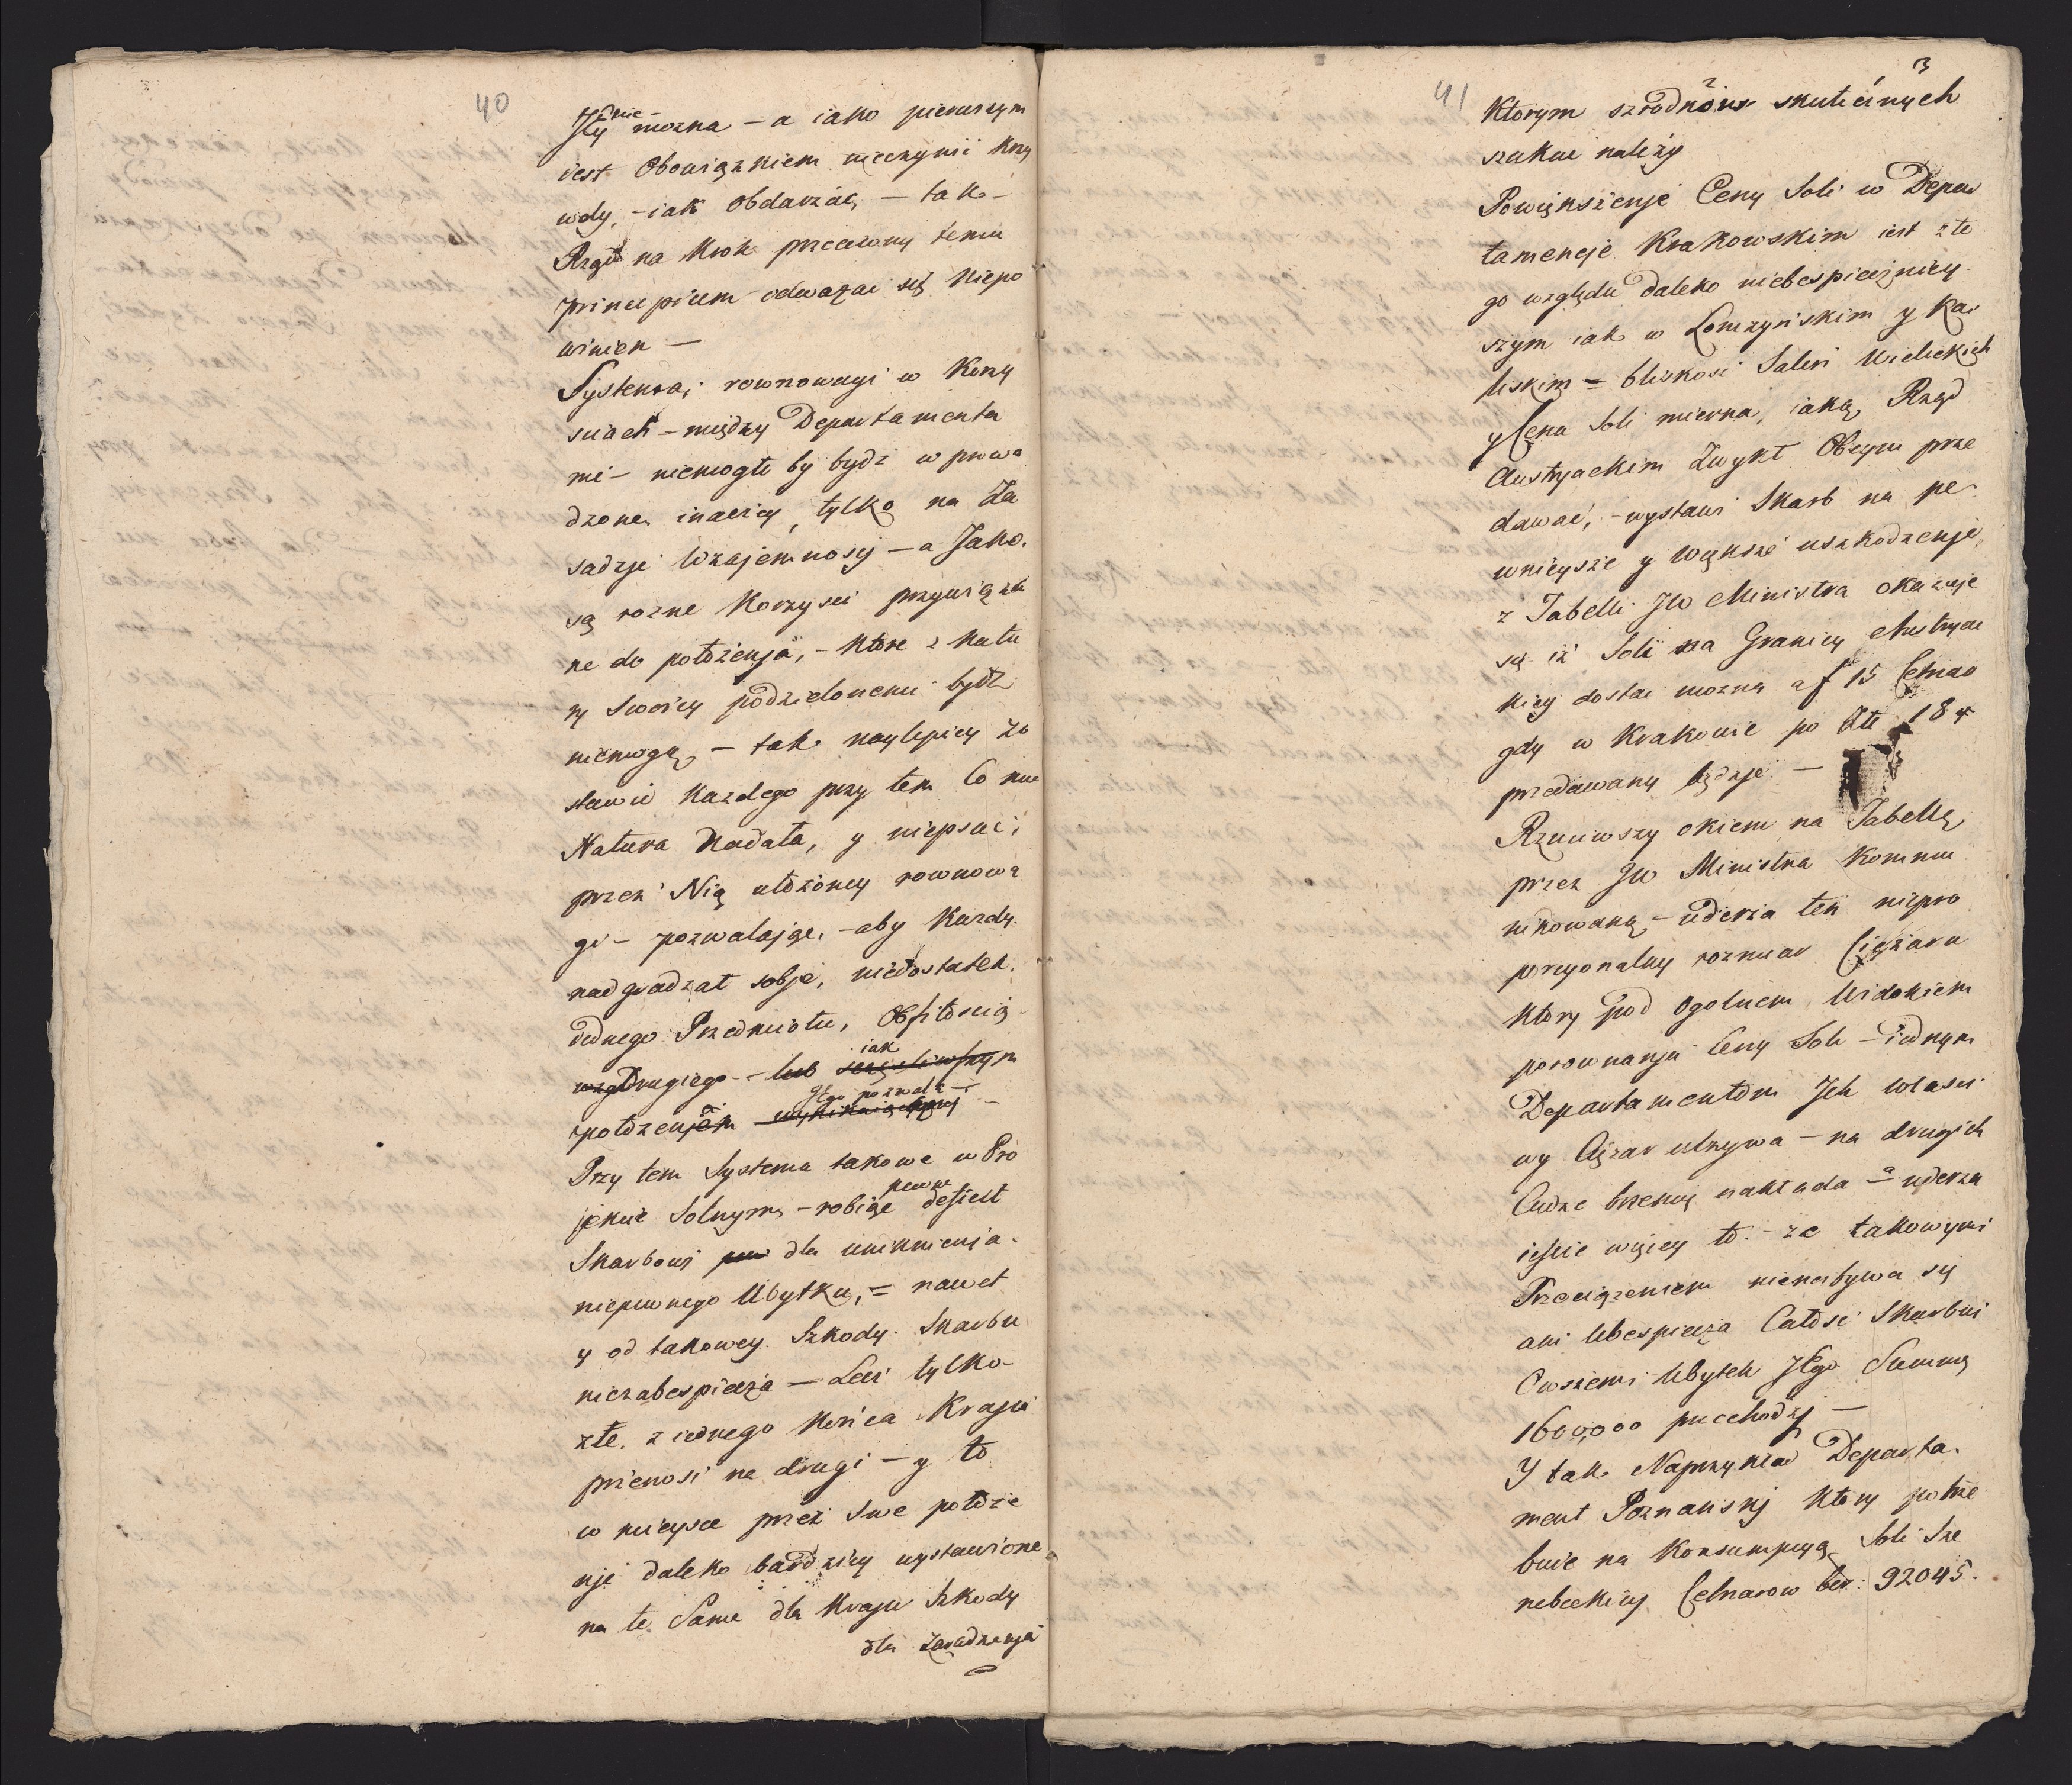 40
nie
można – a iako pierwszym
iest Obowiązkiem nieczynić krzy
wdy, – iak obdarzać, – tak –
Rząd na krok przeciwny temu
principium odważać się niepo
winien –
Systema rownowagi w korzy
sciach – między Departamenta
mi – niemogło by bydź wprowa
dzone, inaczey, tylko na Za
sadzje Wzajemnoscj – a Jako.
są rozne korzysci przywiąza
ne do położenja, – ktore z natu
ry swoiey podzielonemi bydź
niemogą, – tak naylepiey zo
stawić każdego przy tem Co mu
Natura Nadała, y niepsuć
przez Nią ułożoney rownowa
gi – pozwalając, – aby każdy
nadgradzał sobje, niedostatek
jednego Przedmiotu, Obfitoscią
iak
drugiego – lub szczęsliwszym
Jego pozwala –
położenjem wynikaiącym –
Przy tem Systema takowe w Pro
pewne
jekcie Solnym, – robiąc deficit
Skarbowi dla uniknienja
niepewnego Ubytku, = nawet
y od takowey Szkody Skarbu
niezabespiecza – Lecz tylko
złe, z iednego końca kraju
przenosi na drugi – y to
w mieysce przez Swe położe
nje daleko bardziey wystawione
na te Same dla kraju Szkody
dla Zaradzenja
41
3
Ktorym szrodkow skutecznych
szukać należy
Powiększenje Ceny Soli w Depar
tamencje Krakowskim iest z te
go względu daleko niebespieczniey
szym iak w Łomzyńskim y Ka
liskim = bliskosć Salin Wielickich
y Cena Soli mierna, iaką, Rząd
Austryackim Zwykł Obcym prze
dawać, – wystawi Skarb na pe
wnieysze y większe uszkodzenje,
z Tabelli JW Ministra okazuje
się iż Soli na Granicy Austryac
kiey dostać można a f 15 Cetnar
gdy w Krakowie po Złt 18
przedawany będzje –
Rzuciwszy okiem na Tabellę,
przez JW Ministra kommu
nikowaną – uderza ten niepro
porcyonalny rozmiar Ciężaru
ktory pod ogolnem Widokiem
porownanja Ceny Soli – iednym
Departamentom Ich własci
wy Ciężar ulzywa – na drugich
Cudze brzemię nakłada – a uderza
ieszcze więcey to – ze takowym
Przeciążeniem nienabywa się
ani Ubespiecza Całosć Skarbui
Owszem Ubytek Jego Summę
1600,000 przechodzj –
Y tak Naprzykład Departa
ment Poznanskj ktory potrze
buie na Konsumpcyą, Soli Sze
nebeckiey Cetnarow ber: 92045.